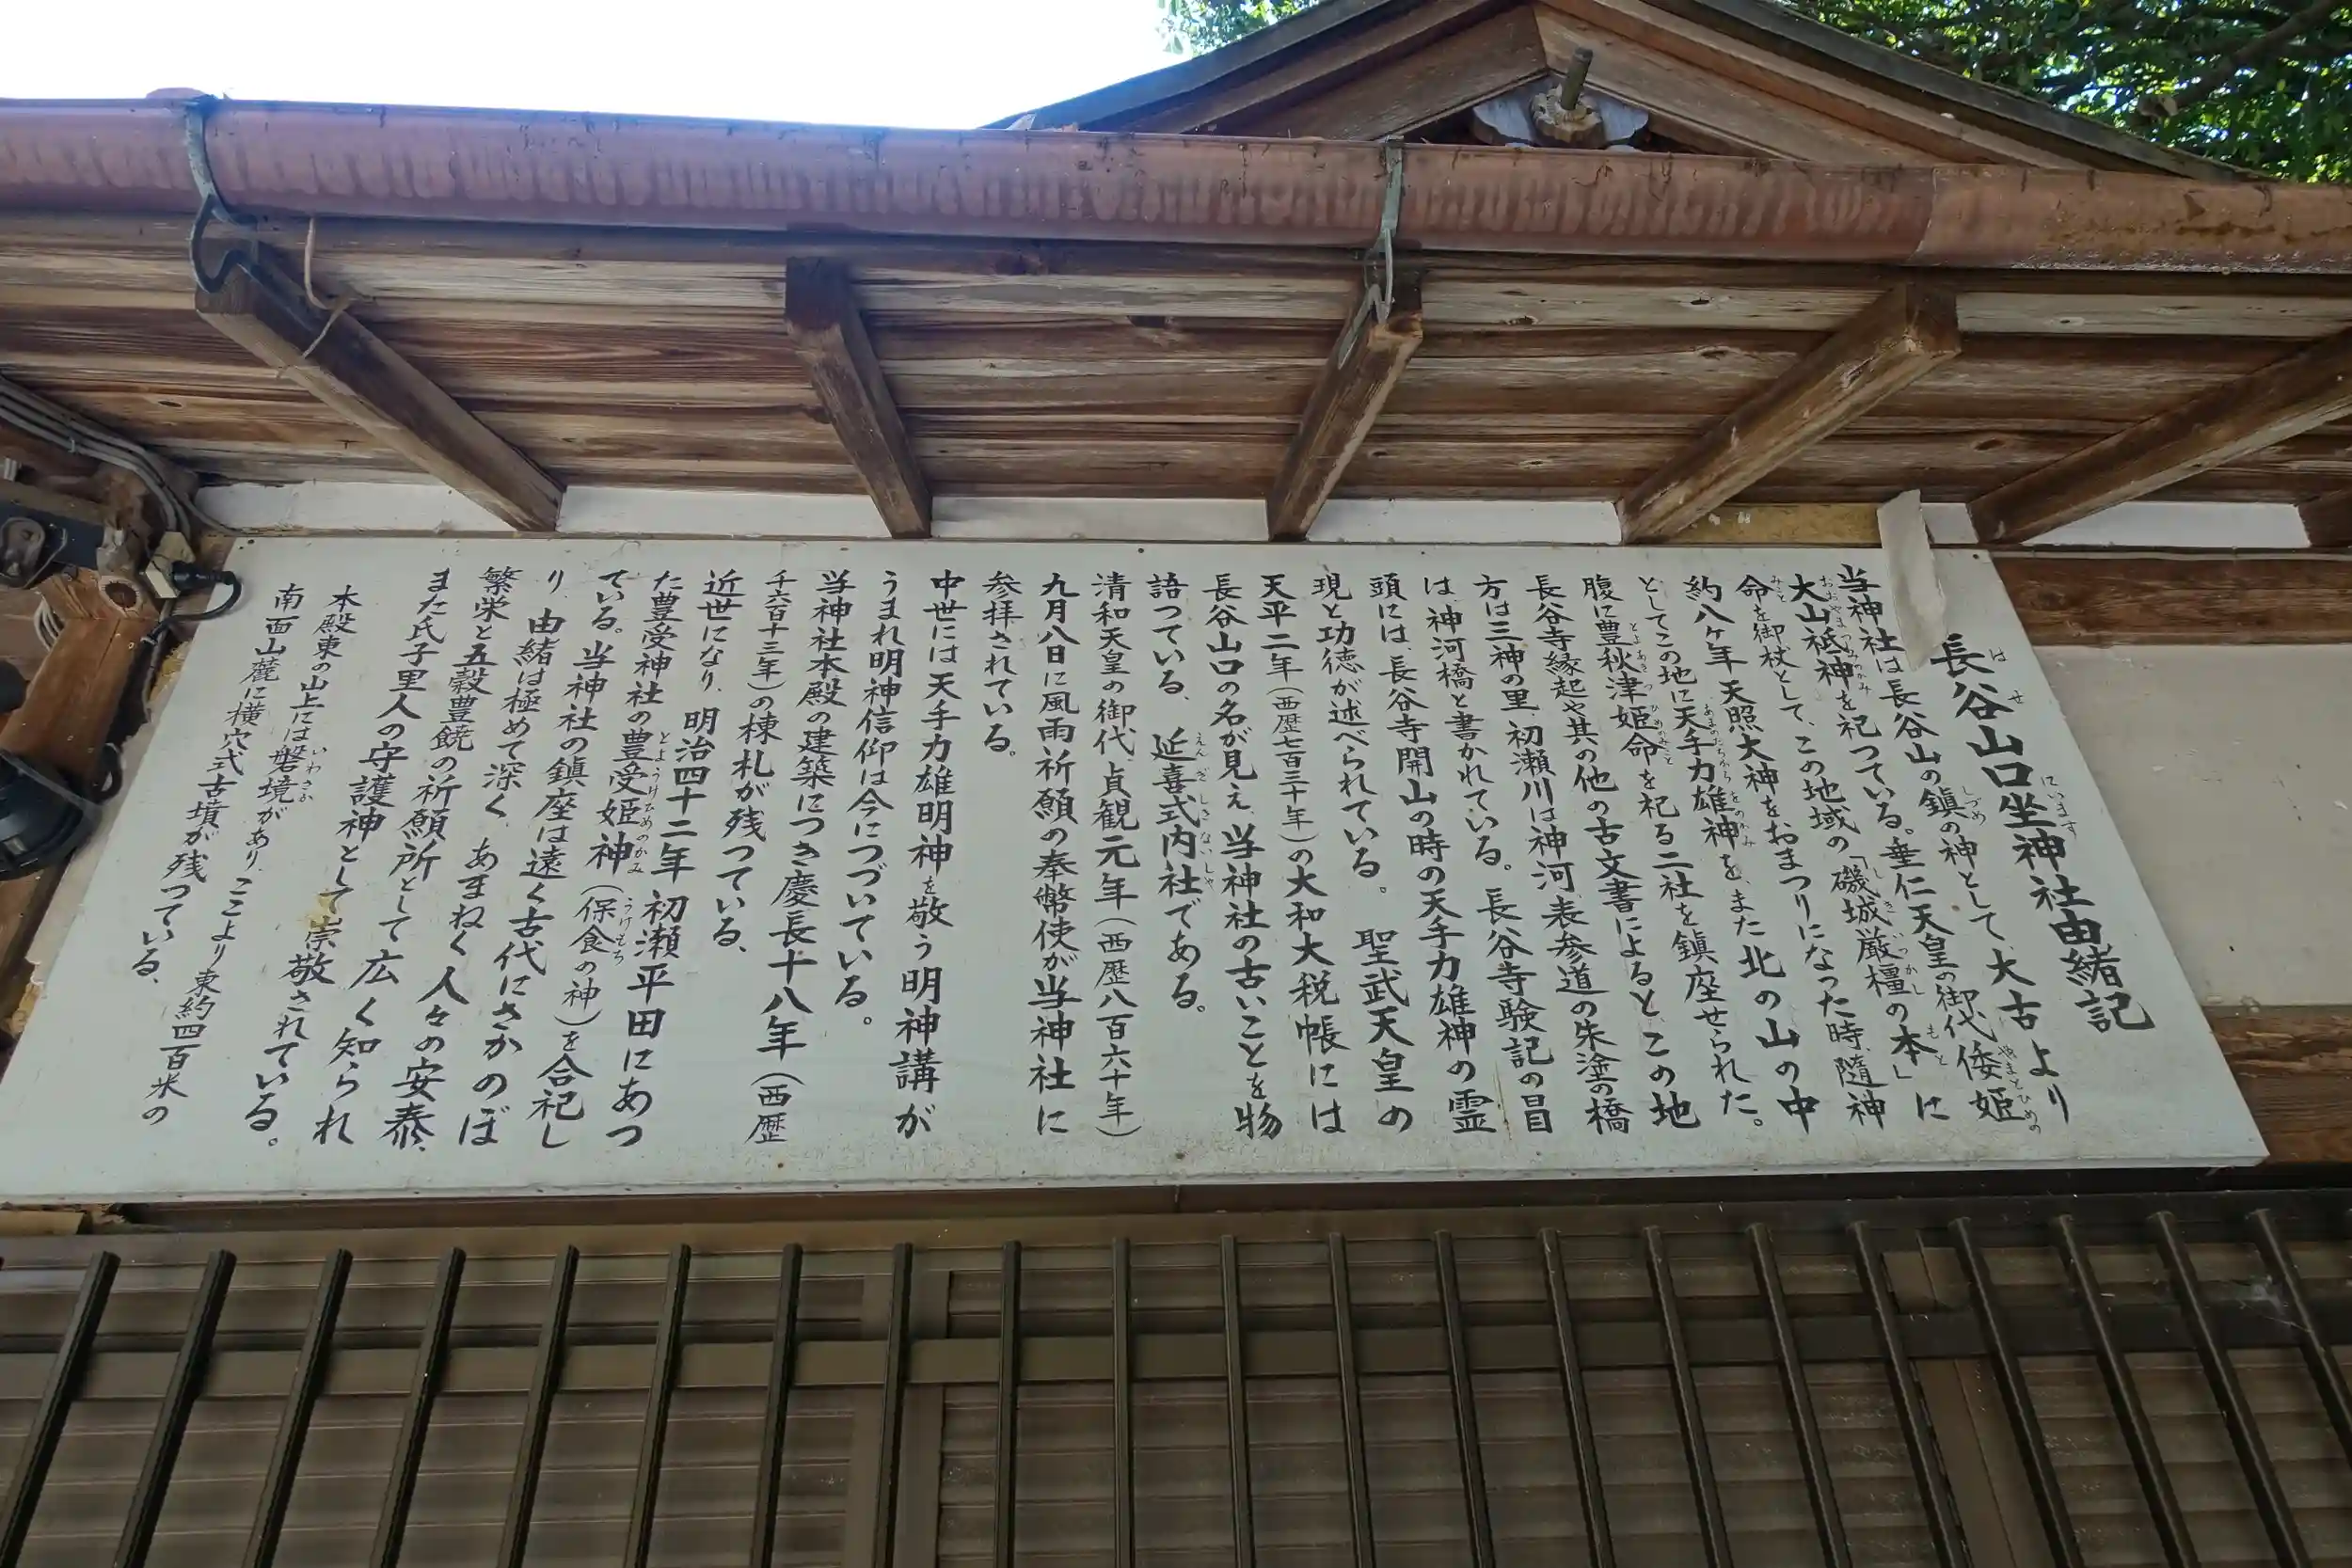 長谷山口坐神社由緒記
当神社は長谷山の鎮の神として、大古より
大山祗神を祀つている。垂仁天皇の御代倭姫
命を御杖として、この地域の「磯城厳橿の本」に
約八ヶ年天照大神をおまつりになった時、隨神
としてこの地に天手力雄神をまた北の山の中
腹に豊秋津姫命を祀る二社を鎮座せられた。
長谷寺縁起や其の他の古文書によると、この地
方は三神の里、初瀬川は神河、表参道の朱塗の橋
は、神河橋と書かれている。長谷寺験記の冒
頭には、長谷寺開山の時の天手力雄神の霊
現と功徳が述べられている。聖武天皇の
天平二年(西歴七百三十年)の大和大税帳には
長谷山口の名が見え、当神社の古いことを物
語つている、延喜式内社である。
清和天皇の御代、貞観元年(西歴八百六十年)
九月八日に風雨祈願の奉幣使が当神社に
参拝されている。
中世には天手力雄明神を敬う明神講が
うまれ明神信仰は今につづいている。
当神社本殿の建築につき慶長十八年(西歴
千六百十三年)の棟札が残つている、
近世になり、明治四十二年初瀬平田にあつ
た豊受神社の豊受姫神(保食の神)を合祀し
ている。当神社の鎮座は遠く古代にさかのぼ
り、由緒は極めて深く、あまねく人々の安泰、
繁栄と五穀豊饒の祈願所として広く知られ
また氏子里人の守護神として崇敬されている。
本殿東の山上には磐境があり、ここより東約四百米の
南面山麓に横穴式古墳が残つている、